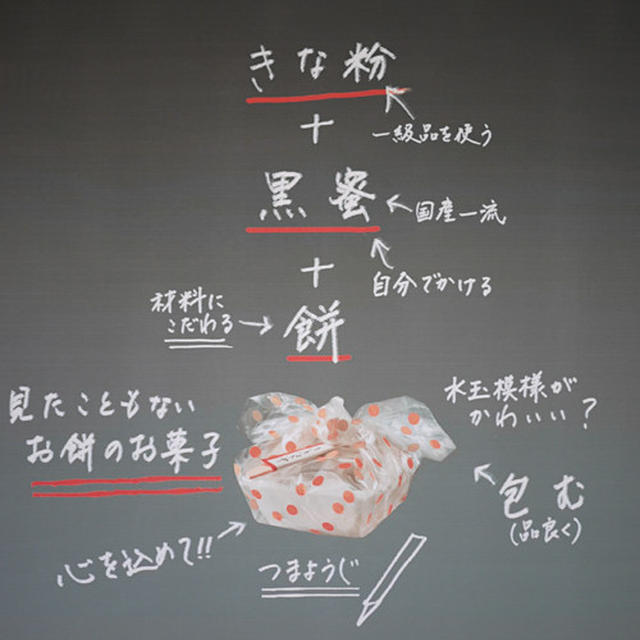 きな粉
+
一級品を使う
黒蜜
国産一流
+
自分でかける
材料に
こだわる
餅
見たこともない
お餅のお菓子
水玉模様が
かわいい?
包む
(品良く)
心を込めて!!
つまようじ